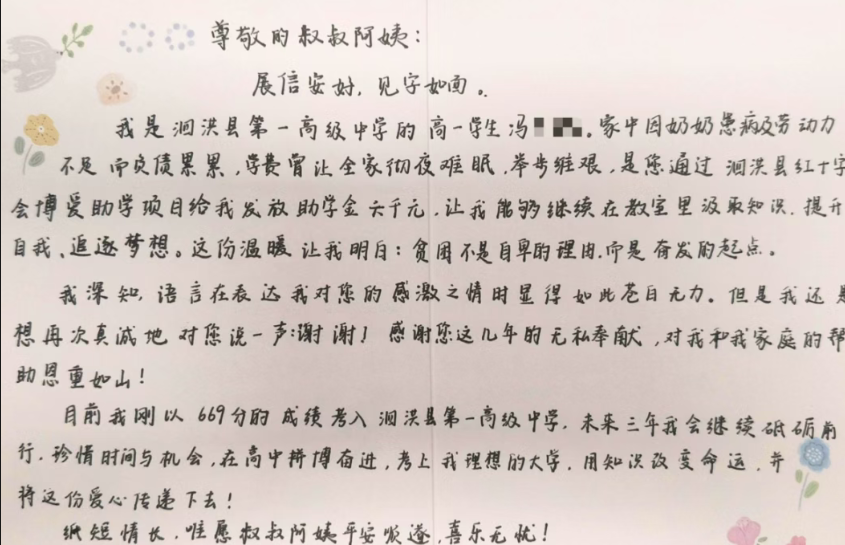 尊敬的叔叔阿姨：
展信安好，见字如面。
我是泗洪县第一高级中学的高一学生冯。家中因奶奶患病及劳动力
不足而负债累累，学费曾让全家彻夜难眠，举步维艰，是您通过泗洪县红十字
会博爱助学项目给我发放助学金六千元，让我能够继续在教室里汲取知识．提升
自我、追逐梦想。这份温暖让我明白：贫困不是自卑的理由．而是奋发的起点。
我深知，语言在表达我对您的感激之情时显得如此苍白无力。但是我还是
想再次真诚地对您说一声：谢谢！感谢您这几年的无私奉献，对我和我家庭的帮
助恩重如山！
目前我刚以669分的成绩考入泗洪县第一高级中学．未来三年我会继续砥砺前
行．珍惜时间与机会，在高中拼搏奋进，考上我理想的大学．用知识改变命运，并
将这份爱心传递下去！
纸短情长，唯愿叔叔阿姨平安顺遂，喜乐无忧！